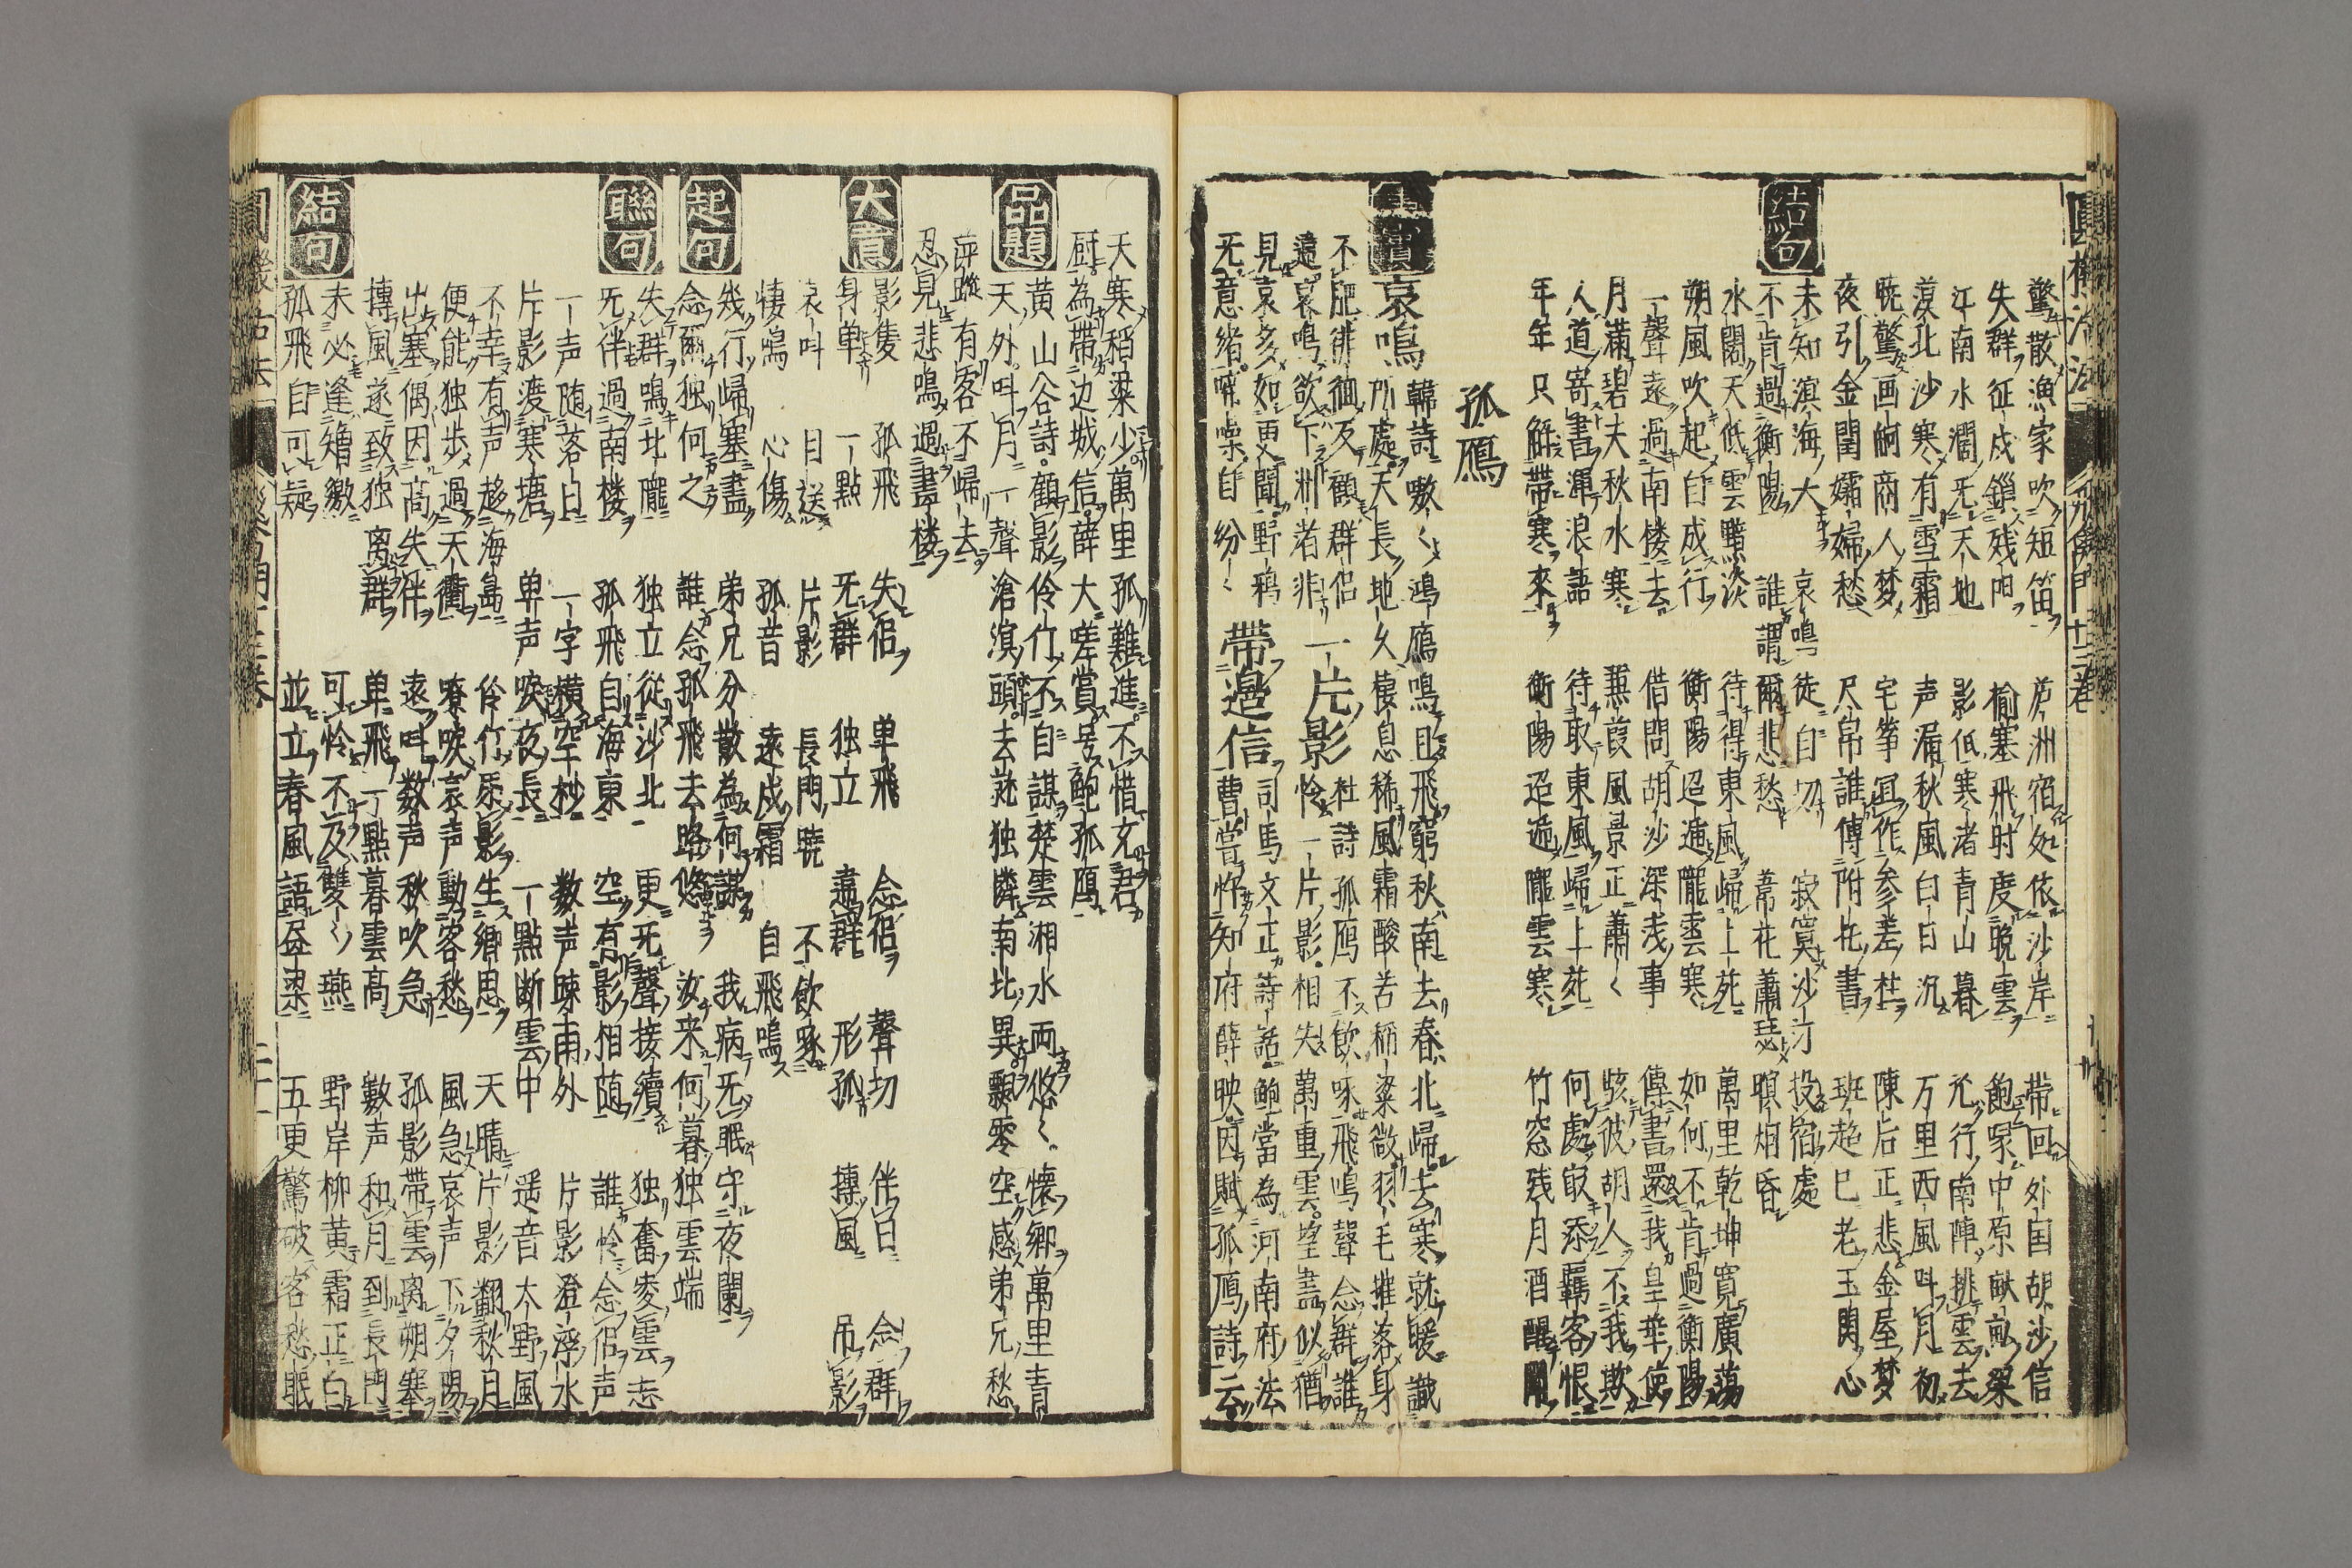 驚散漁家吹短笛　芦洲宿処依沙岸　帯回外国胡沙信
失群征戍鎖残阳　榆塞飛时度晚雲　飽喙中原畎畒粱
江南水濶无天地　影低寒渚青山暮　冗行南陣挑雲去
漠北沙寒有雪霜　声漏秋風白日沉　万里西風叫月初
曉驚画舸商人梦　宅筝冝作参差柱　陳后正悲金屋梦
夜引金閨孀婦愁　尺帛誰傳附托書　班超已老玉関心
結句
未知溟海大　哀鳴徒自切　寂寞沙汀投宿處
不肯過衡陽　誰謂爾悲愁　葦花蕭瑟暝烟昏
水闊天低雲黯淡　待得東風歸上苑　萬里乾坤寛廣蕩
朔風吹起自成行　衡陽迢遞隴雲寒　如何不肯過衡陽
一聲遠過南楼去　借問胡沙深浅事　傳書還我皇華使
月滿碧夫秋水寒　蒹葭風景正蕭〱　咳彼胡人不我欺
人道寄書渾浪語　待取東風歸上苑　何處最添羇客恨
年年只解帯寒來　衡陽迢遞隴雲寒　竹窓残月酒醒聞
孤鴈
哀鳴　韓詩嗷〱鴻鴈鳴且飛窮秋南去春北歸去寒就暖識
所處天長地久棲息稀風霜酸苦稻粱微羽毛摧落身
不肥徘徊反顧群侶　一片影　杜詩孤鴈不飲啄飛鳴聲念群誰
違哀鳴欲下洲渚非　怜一片影相失萬重雲望盡似猶
見哀多如更聞野鴉　帶邉信　司馬文正詩話鮑當為河南府法
无意緒鳴噪自紛〱　曹嘗忤知府薛映因賦孤鴈詩云
天寒稻粱少萬里孤難進不惜充君
厨為帶边城信薛大嗟賞号鮑孤鴈
品題
黄山谷詩顧影伶仃不自謀楚雲湘水両悠〱懷郷萬里青
天外叫月一聲滄溟頭去就独憐南北異飄零空感弟兄愁
萍蹤有客不歸去
忍見悲鳴過畫楼
大意
影隻　孤飛　失侶　单飛　念侶　聲切　伴日　念群
身单　一點　无群　独立　違群　形孤　摶風　吊影
哀叫　目送　片影　長門曉　不飲啄
悽鳴　心傷　孤音　遠戍霜　自飛鳴
起句
幾行歸塞盡　弟兄分散為何謀　我病无眠守夜闌
念爾独何之　誰念孤飛去路悠　汝来何暮独雲端
聯句
失群鳴北隴　独立從沙北　更无聲接續　独奮麥雲志
无伴過南楼　孤飛自海東　空有影相随　誰怜念侶声
一声随落日　一字橫空杪　数声踈雨外　片影澄浮水
片影渡寒塘　单声唳夜長　一點断雲中　遥音太野風
不幸有声趍海島　伶仃原影生郷思　天晴片影翻秋月
便能独步過天衢　嘹唳哀声動客愁　風急哀声下夕陽
出塞偶因高失伴　遠叫数声秋吹急　孤影帯雲离朔塞
摶風遂致独离群　单飛一點暮雲高　數声和月到長門
結句
未必逢矰繳　可怜不及雙〱燕　野岸柳黄霜正白
孤飛自可疑　並立春風語昼梁　五更驚破客愁眠